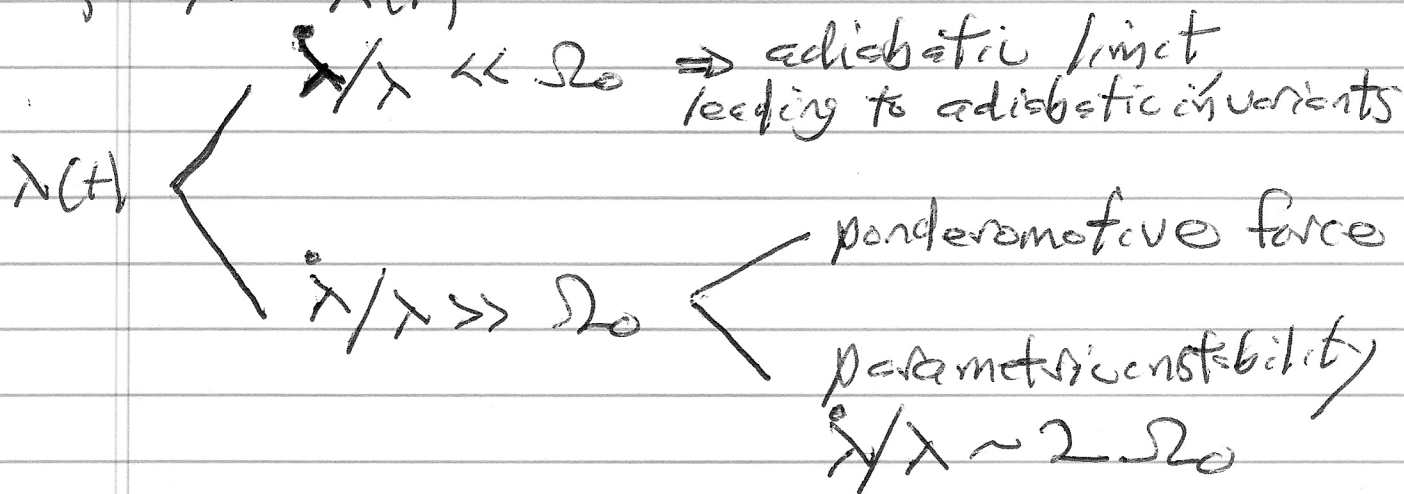 λ̇/λ << Ω₀ ⇒ adiabatic limit
leading to adiabatic invariants
λ(t)
ponderomotive force
λ̇/λ >> Ω₀
parametric instability
λ̇/λ ~ 2Ω₀